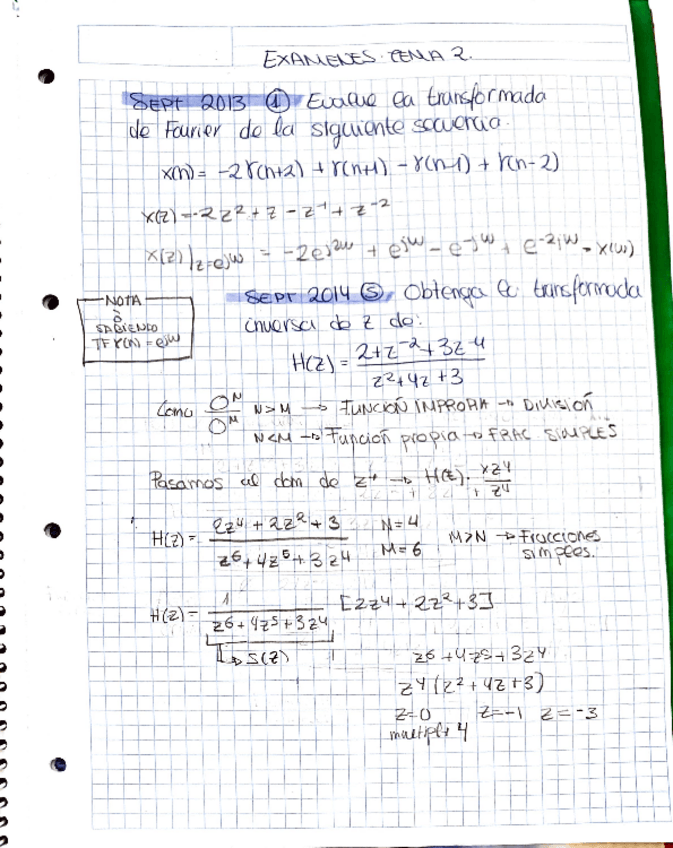 EXAMENES TEMA 2.
SEPT 2013 ① Evalue la transformada
de Fourier de la siguiente secuencia.
x(n) = -2δ(n+2) + δ(n+1) - δ(n-1) + δ(n-2)
X(z) = -2z² + z - z⁻¹ + z⁻²
X(z)|z=ejω = -2ej2ω + ejω - e-jω + e-2jω = X(ω)
NOTA
ó
SABIENDO
TF δ(N) = ejω
SEPT 2014 ⑤, Obtenga la transformada
inversa de z de:
H(z) = (2+z⁻²+3z⁻⁴)/(z²+4z+3)
Como O^N/O^M N>M → FUNCIÓN IMPROPIA → DIVISIÓN
N<M → Función propia → FRAC SIMPLES
Pasamos al dom de z⁺ → H(z) · xz⁴/z⁴
H(z) = (2z⁴ + 2z² + 3)/(z⁶ + 4z⁵ + 3z⁴) N=4 M=6 M>N → Fracciones simples.
H(z) = 1/(z⁶ + 4z⁵ + 3z⁴) [2z⁴ + 2z² + 3]
↳ S(z)
z⁶ + 4z⁵ + 3z⁴
z⁴(z² + 4z + 3)
z=0 z=-1 z=-3
multiple 4